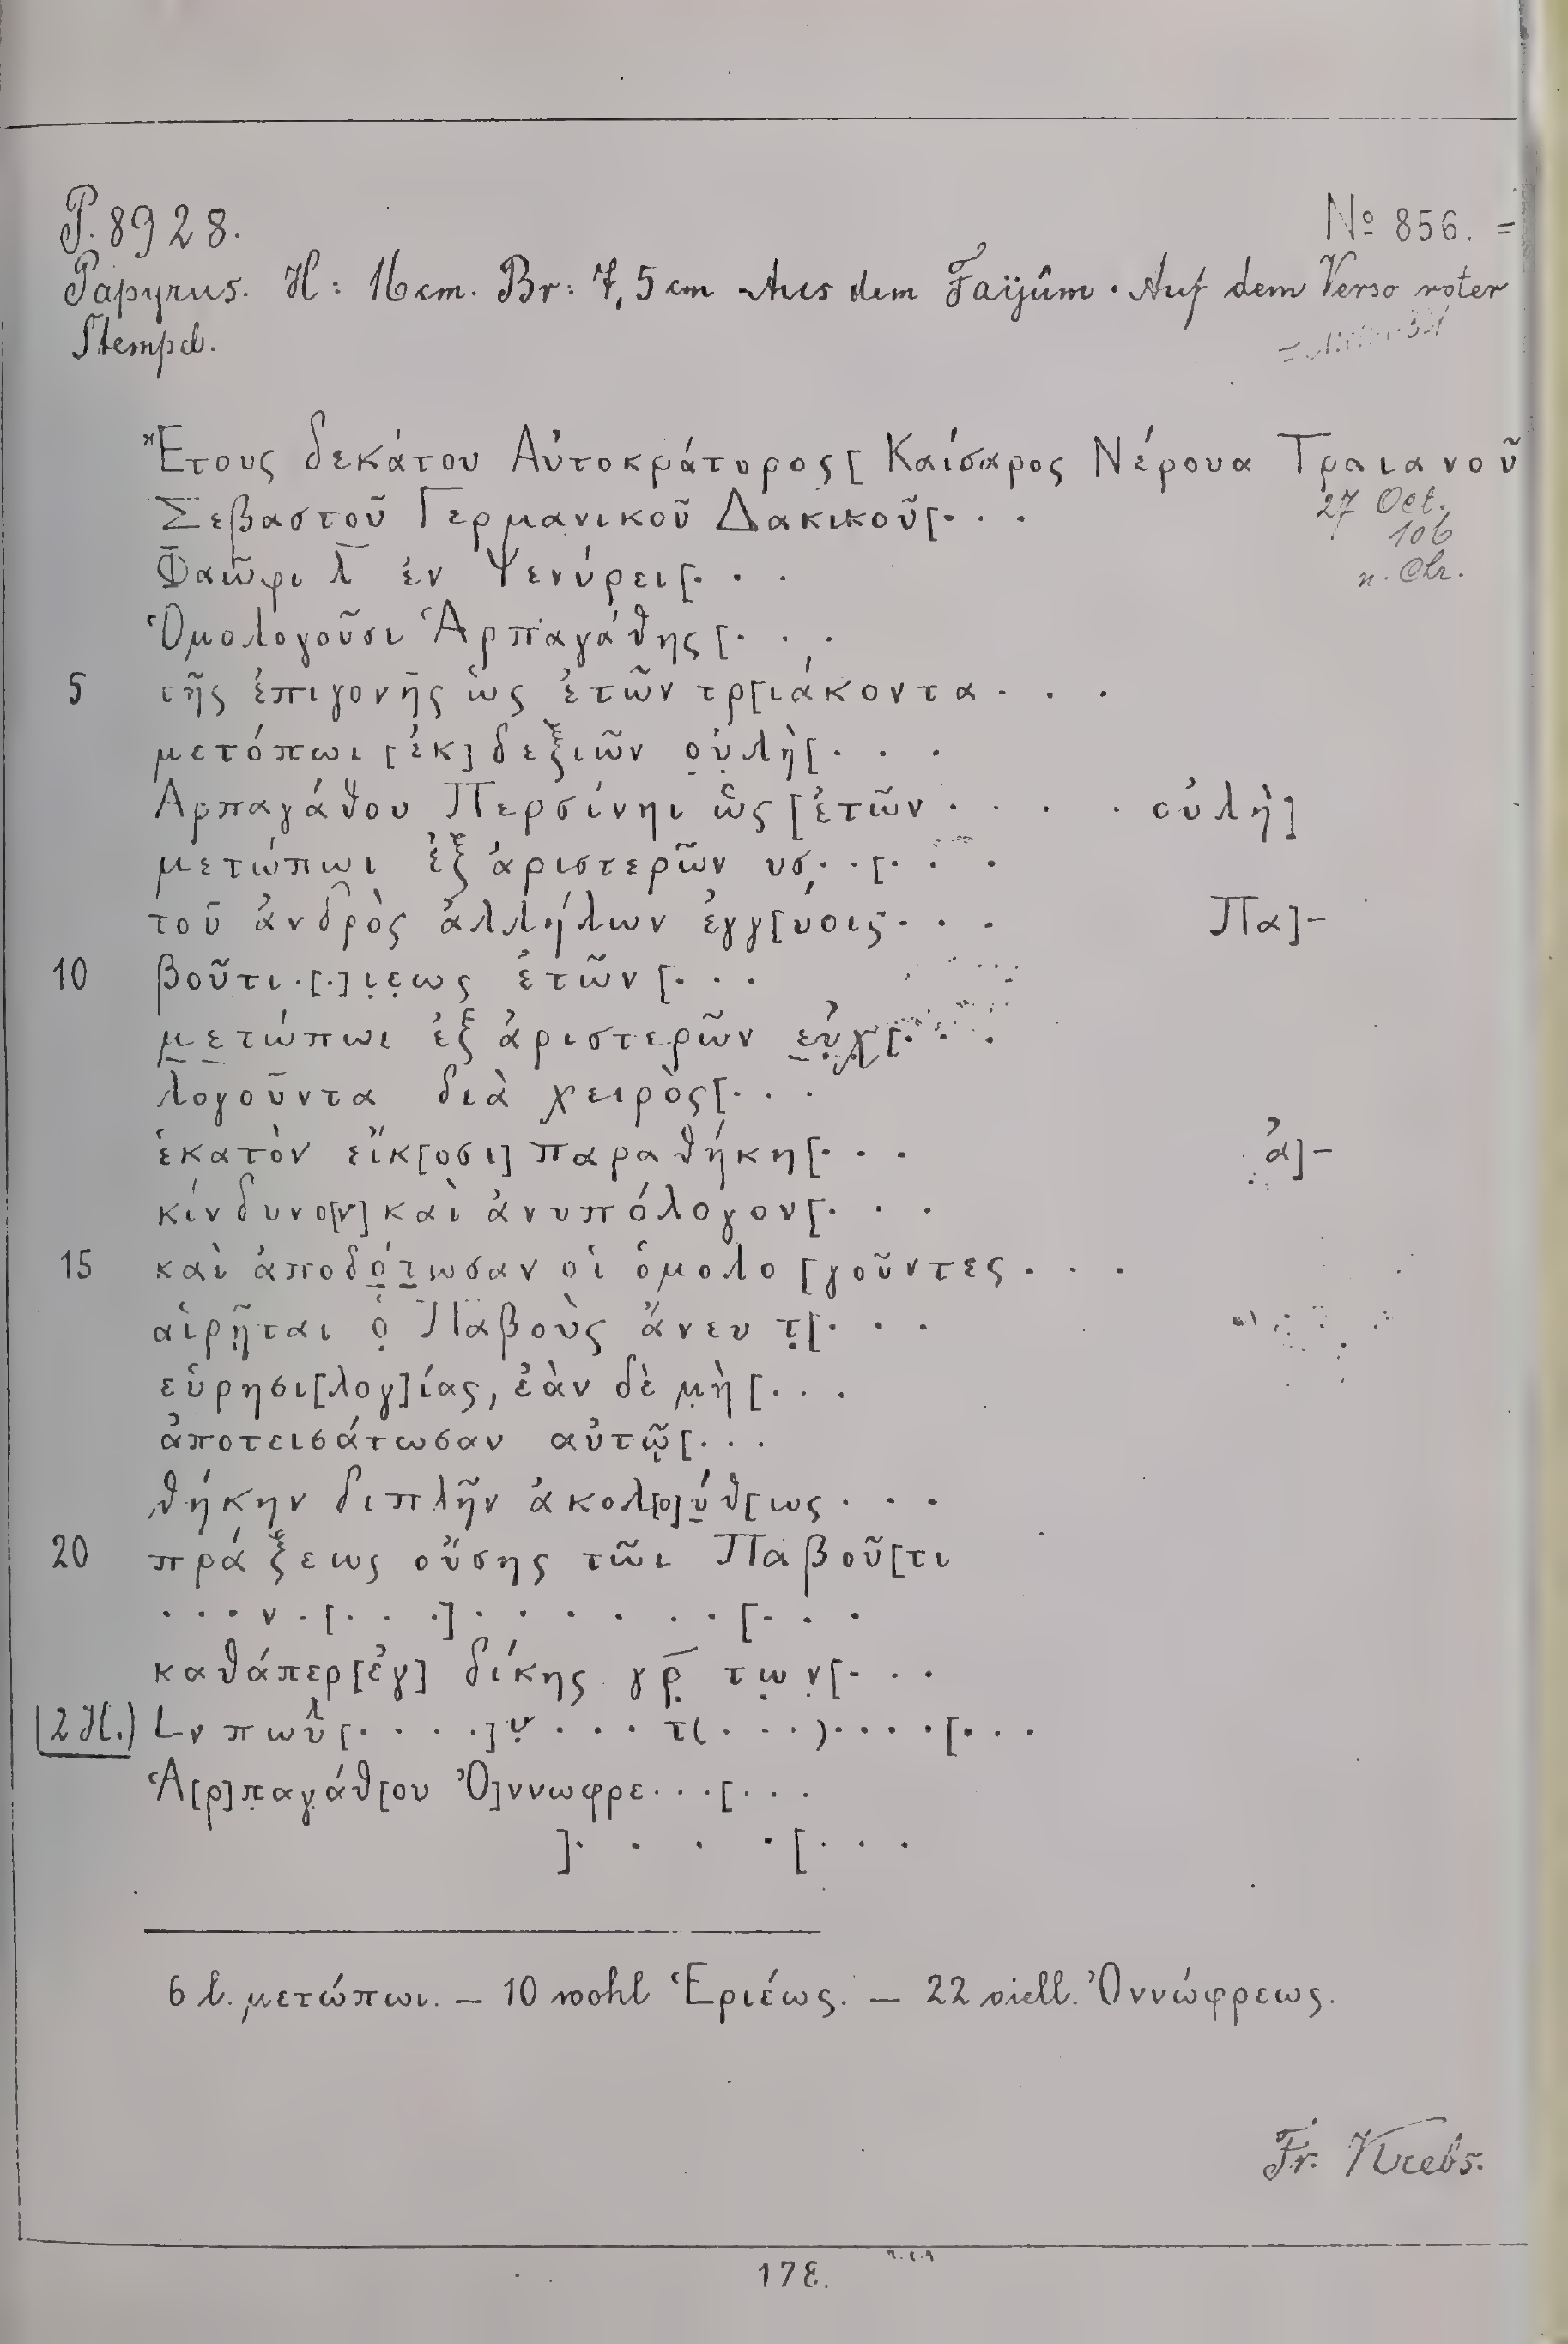 P. 8928. № 856. =
Papyrus. H: 16 cm. Br: 7,5 cm Aus dem Faijûm. Auf dem Verso roter
Stempel.
Ἔτους δεκάτου Αὐτοκράτορος[ Καίσαρος Νέρουα Τραιανοῦ
Σεβαστοῦ Γερμανικοῦ Δακικοῦ[. . .
27 Oct.
106
n. Chr.
Φαῶφι λ̅ ἐν Ψενύρει[. . .
Ὁμολογοῦσι Ἁρπαγάθης[. . .
5 τῆς ἐπιγονῆς ὡς ἐτῶν τρ[ιάκοντα . . .
μετόπωι [ἐκ] δεξιῶν ο̣ὐ̣λὴ[. . .
Ἁρπαγάθου Περσίνηι ὡς [ἐτῶν . . . . οὐλὴ]
μετώπωι ἐξ ἀριστερῶν υσ. . [. . .
τοῦ ἀνδρὸς ἀλλήλων ἐγγ[ύοις. . . Πα]-
10 βοῦτι .[.] ι̣ε̣ως ἐτῶν [. . .
μ̣ε̣τώπωι ἐξ ἀριστερῶν ε̣ὐ̣χ̣[. . .
λογοῦντα διὰ χειρὸς[. . .
ἑκατὸν εἴκ[οσι] παραθήκη[. . . ἀ]-
κίνδυνο[ν] καὶ ἀνυπόλογον[. . .
15 καὶ ἀποδό̣τ̣ωσαν οἱ ὁμολο[γοῦντες . . .
αἱρῆται ὁ̣ Παβοὺς ἄνευ τ̣[. . .
εὑρησι[λογ]ίας, ἐὰν δὲ μ̣ὴ [. . .
ἀποτεισάτωσαν αὐτῷ[. . .
θήκην διπλῆν ἀκολ[ο]ύ̣θ[ως . . .
20 πράξεως οὔσης τῶι Παβοῦ[τι
. . . ν . [. . .] . . . . . . . [. . .
καθάπερ [ἐγ] δίκης γρ̣̅ τω̣ν̣[. . .
(2 H.) Lν πωυλ[. . . .] ν̣ . . . τ(. . .) . . . . [. . .
Ἁ[ρ]π̣αγ̣άθ[ου Ὀ]ννωφρε. . .[. . .
]. . . . [. . .
6 l. μετώπωι. – 10 wohl Ἑριέως. – 22 viell. Ὀννώφρεως.
Fr. Krebs.
178.